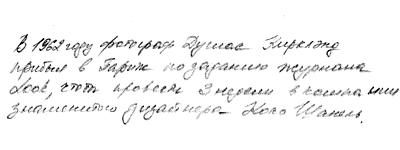 В 1962 году фотограф Дуглас Кирклэнд
прибыл в Париж по заданию журнала
Look, чтобы провести 3 недели в компании
знаменитого дизайнера Коко Шанель.